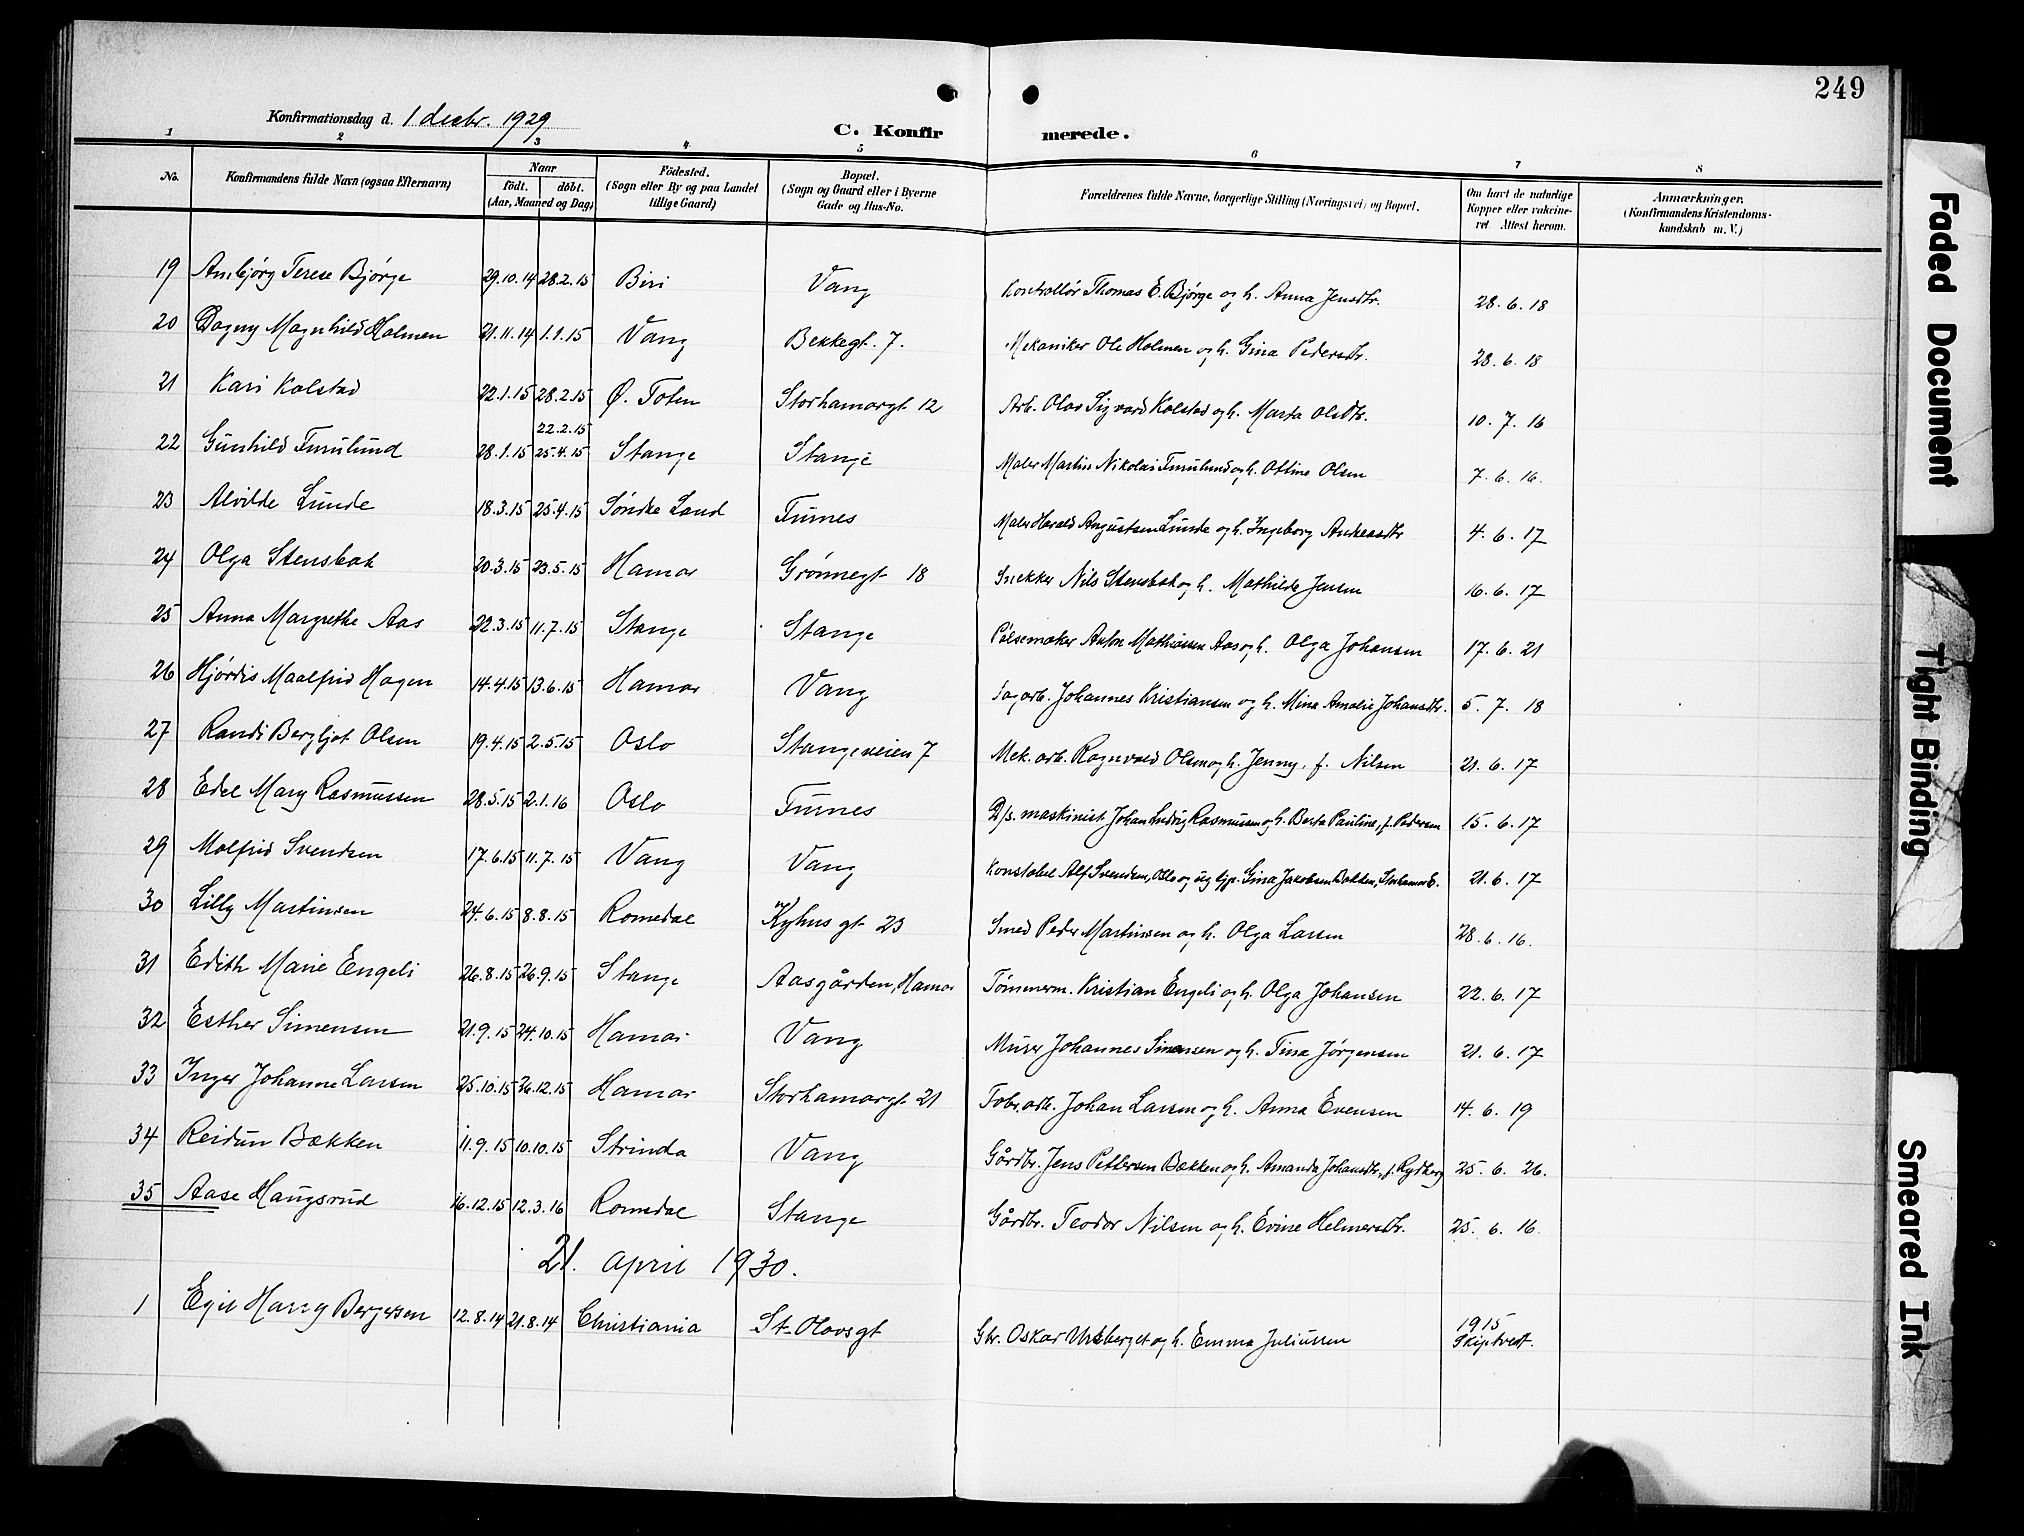 249
Konfirmationsdag d. 1 decbr. 1929
C. Konfirmerede.
1 2 3 4 5 6 7 8
No.
Konfirmandens fulde Navn (ogsaa Efternavn)
Naar
födt. döbt.
(Aar, Maaned og Dag)
Födested.
(Sogn eller By og paa Landet
tillige Gaard)
Bopæl.
(Sogn og Gaard eller i Byerne
Gade og Hus-No.
Forældrenes fulde Navne, borgerlige Stilling (Næringsvei) og Bopæl.
Om havt de naturlige
Kopper eller vakcine-
ret. Attest herom.
Anmærkninger.
(Konfirmandens Kristendoms-
kundskab m. V.)
19 Ambjörg Terese Björge 29.10.14 28.2.15 Biri Vang Kontrollör Thomas E. Björge og h. Anna Jensdtr. 28.6.18
20 Dagny Magnhild Holmen 21.11.14 1.1.15 Vang Bekkegt. 7. Mekaniker Ole Holmen og h. Gina Pedersdtr. 28.6.18
21 Kari Kolstad 22.1.15 28.2.15 Ø. Toten Storhamargt 12 Arb. Olav Sigvard Kolstad og h. Marta Olsdtr. 10.7.16
22.2.15
22 Gunhild Furulund 28.1.15 25.4.15 Stange Stange Maler Martin Nikolai Furulund og h. Ottine Olsen 7.6.16.
23 Alvilde Lunde 18.3.15 25.4.15 Søndre Land Furnes Maler Harald Augustsen Lunde og h. Ingeborg Andreasdtr 4.6.17
24 Olga Stensbak 20.3.15 23.5.15 Hamar Grønnegt 18 Snekker Nils Stensbak og h. Mathilde Jensen 16.6.17
25 Anna Margrethe Aas 22.3.15 11.7.15 Stange Stange Pølsemaker Anton Mathiassen Aas og h. Olga Johansen 17.6.21
26 Hjördis Maalfrid Hagen 14.4.15 13.6.15 Hamar Vang Johannes Kristiansen og h. Mina Amalie Johansdtr. 5.7.18
27 Randi Bergljot Olsen 19.4.15 2.5.15 Oslo Stangeveien 7 Mek. arb. Ragnvald Olsen og h. Jenny, f. Nilsen 21.6.17
28 Edel Mary Rasmussen 28.5.15 2.1.16 Oslo Furnes D/s. maskinist Johan Ludvig Rasmussen og h. Berta Pauline, f. Pedersen 15.6.17
29 Molfrid Svendsen 17.6.15 11.7.15 Vang Vang Konstabel Alf Svendsen, Oslo og ug. Gina Jakobsen Bakken, 21.6.17
30 Lilly Martinsen 24.6.15 8.8.15 Romedal Kyhns gt 23 Smed Peder Martinsen og h. Olga Larsen 28.6.16.
31 Edith Marie Engeli 26.8.15 26.9.15 Stange Aasgården, Hamar Tømmerm. Kristian Engeli og h. Olga Johansen 22.6.17
32 Esther Simensen 21.9.15 24.10.15 Hamar Vang Murer Johannes Simensen og h. Tina Jørgensen 21.6.17
33 Inger Johanne Larsen 25.10.15 26.12.15 Hamar Storhamargt 21 Fabr.arb. Johan Larsen og h. Anna Evensen 14.6.19
34 Reidun Bækken 11.9.15 10.10.15 Strinda Vang Gårdbr. Jens Pettersen Bækken og h. Amanda Johansdtr., f. Rydberg 25.6.26.
35 Aase Haugsrud 16.12.15 12.3.16 Romedal Stange Gårdbr. Teodor Nilsen og h. Evine Helmersdtr. 25.6.16.
21. april 1930.
1 Egil Harry Bergersen 12.8.14 21.8.14 Christiania St. Olavsgt Gbr. Oskar og h. Emma Juliussen 1915
Skiptvedt.
Faded Document
Tight Binding
Smeared Ink